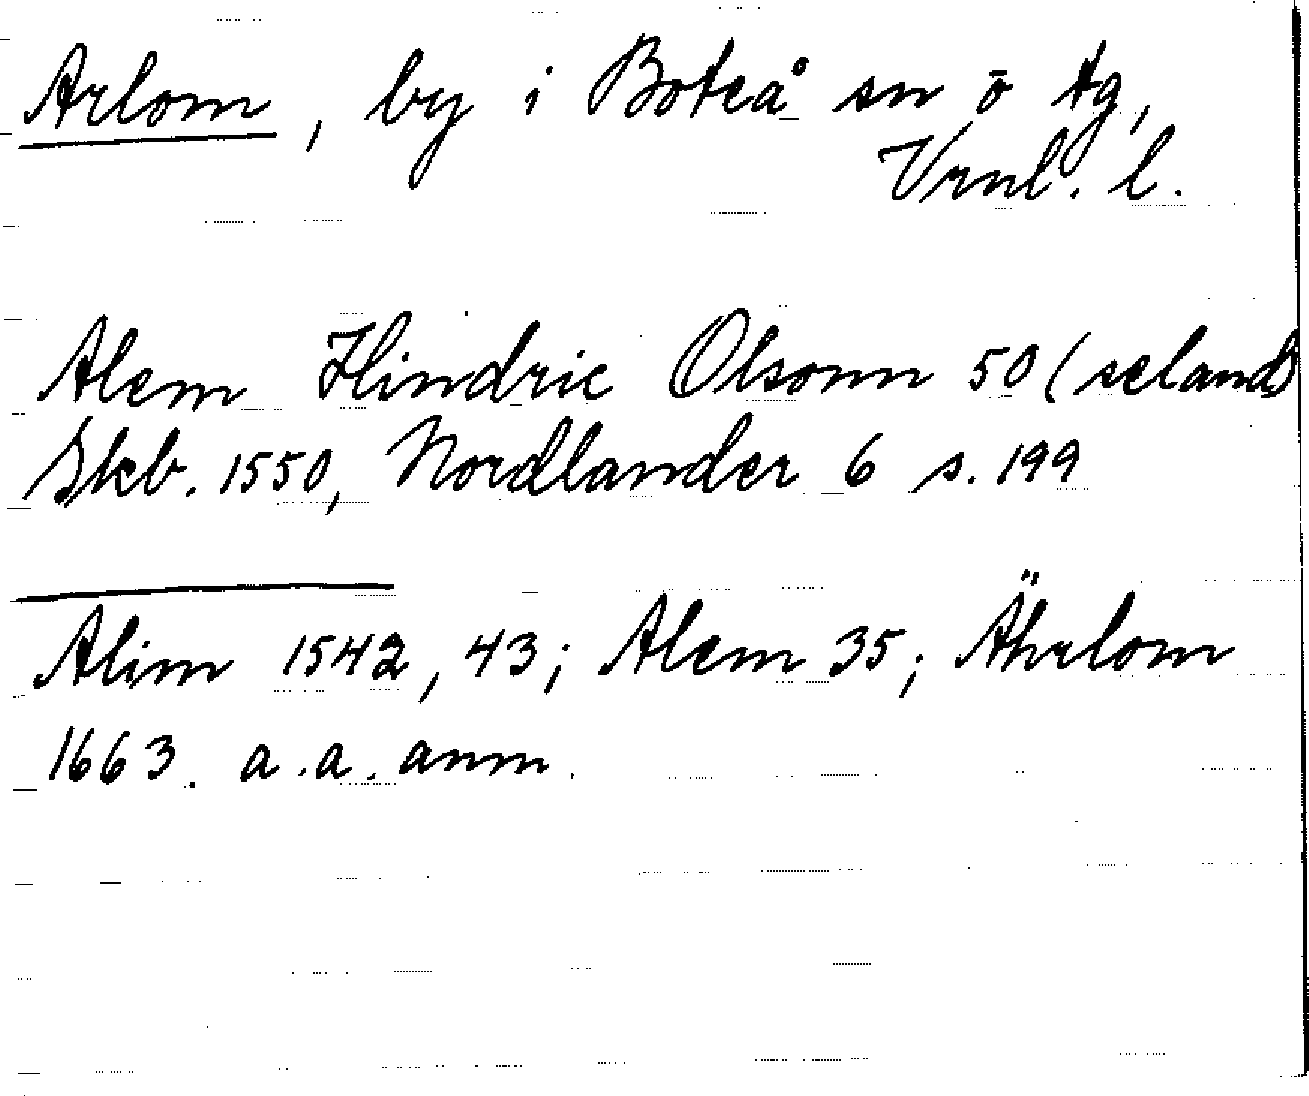 Arlom, by i Boteå sn ö Åg,
Vrnl. l.
Alem Hindric Olsonn 50 (seland)
Skb. 1550, Nordlander 6 s. 199
Alim 1542, 43; Alem 35; Ährlom
1663. a.a. anm.